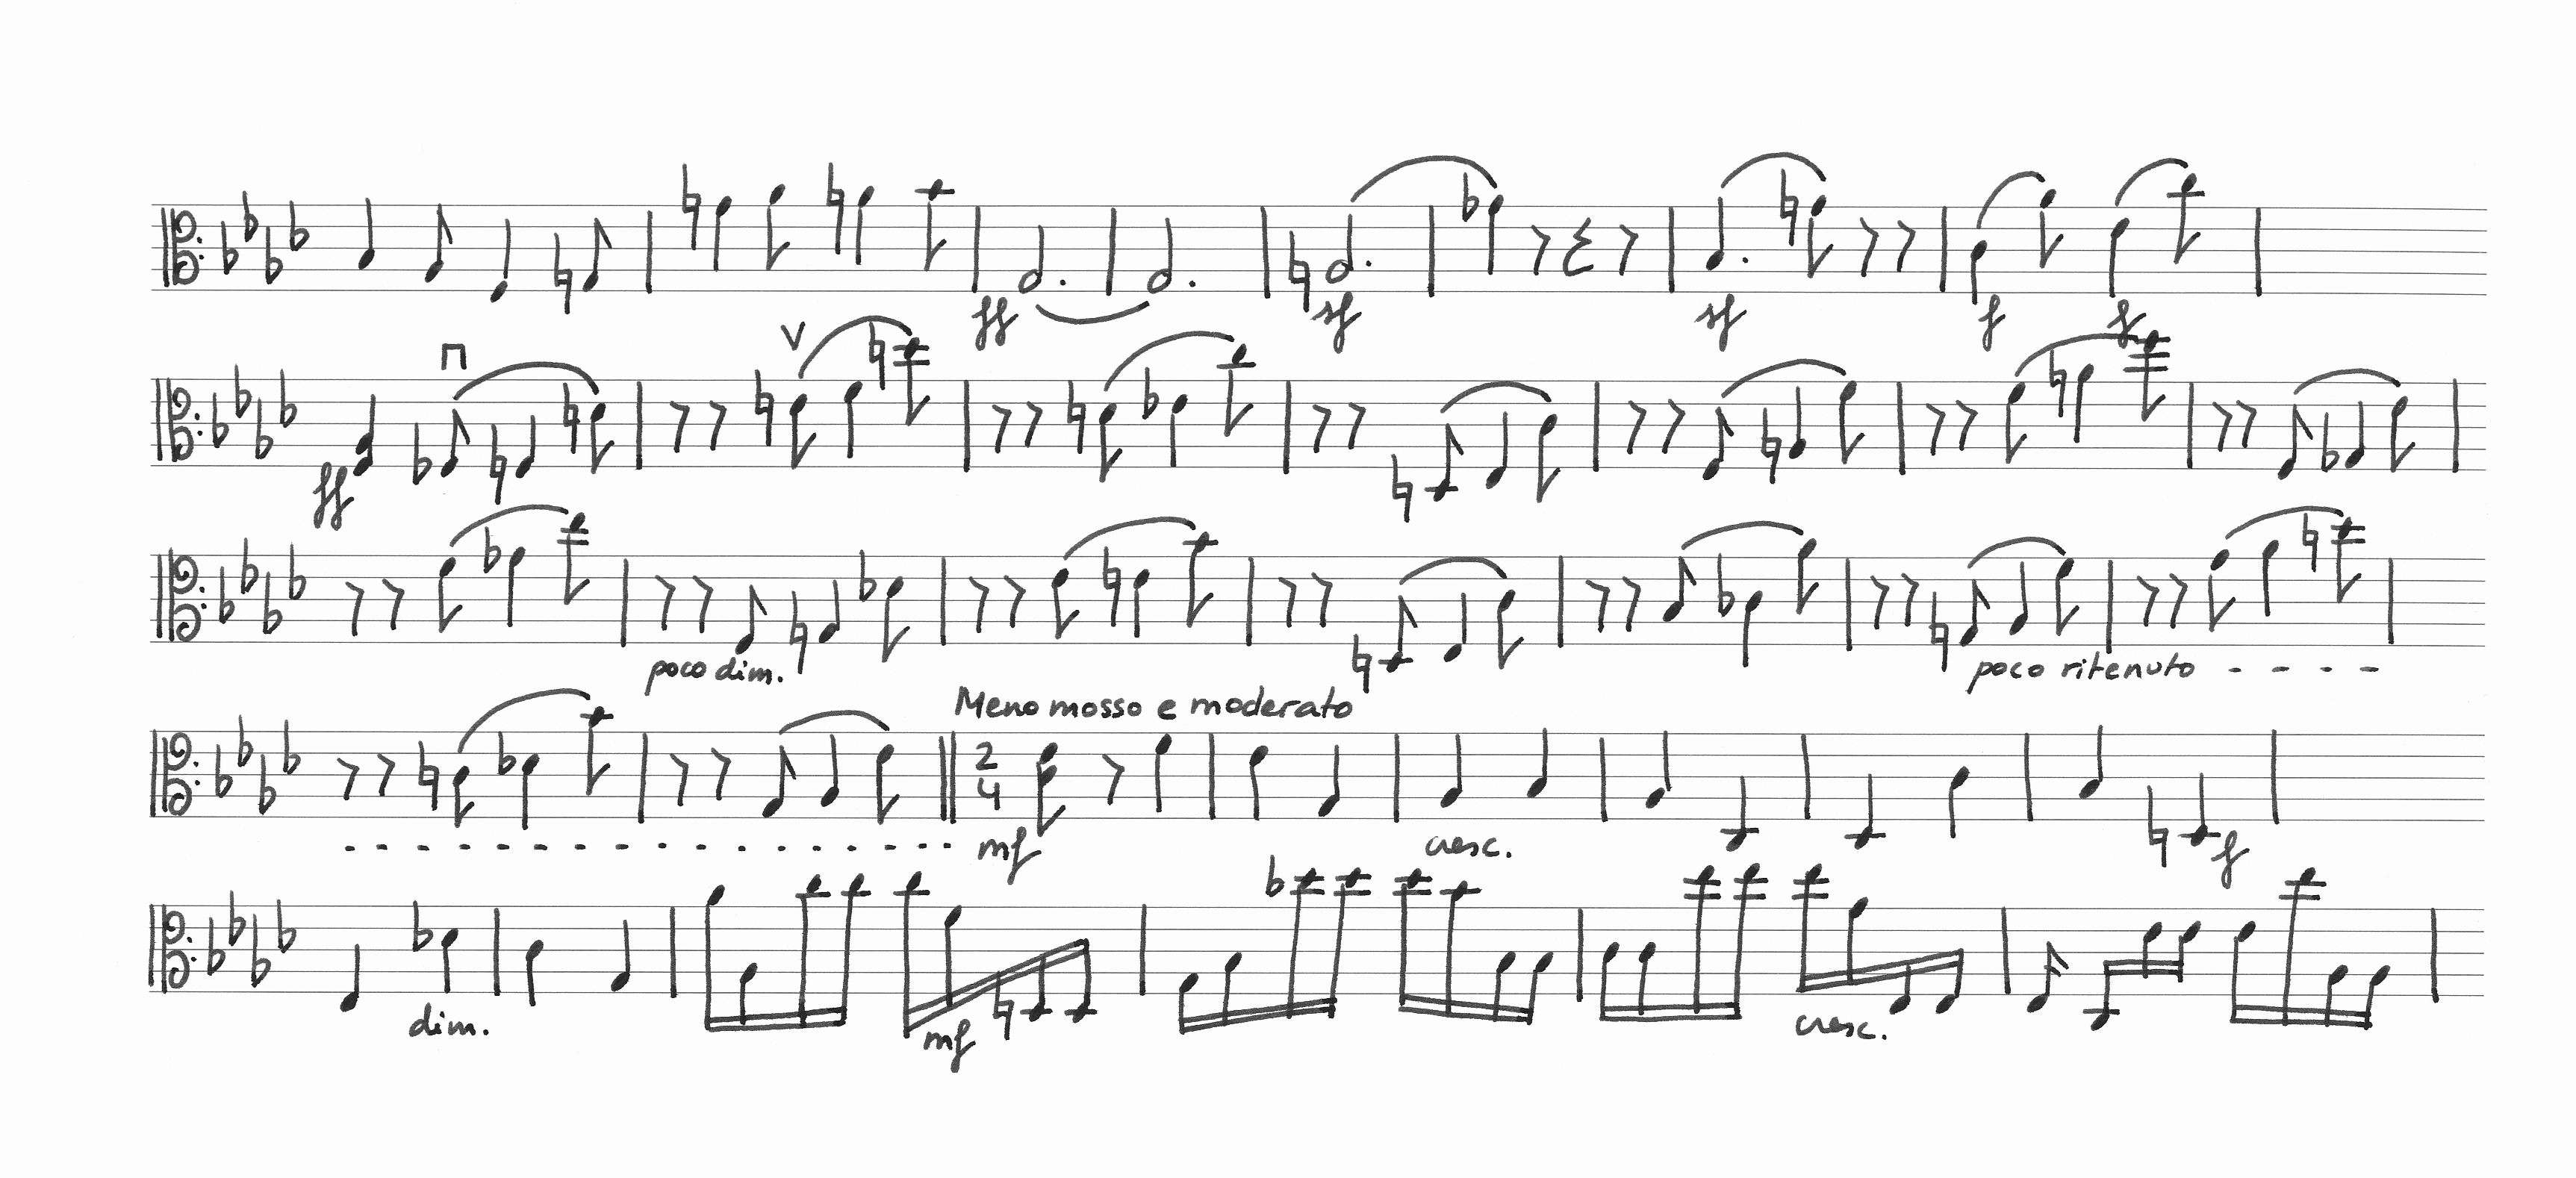 ff sf sf f f
ff
poco dim. poco ritenuto - - - -
Meno mosso e moderato
2
4
- - - - - - - - - - - - - - - - mf cresc. f
dim. mf cresc.